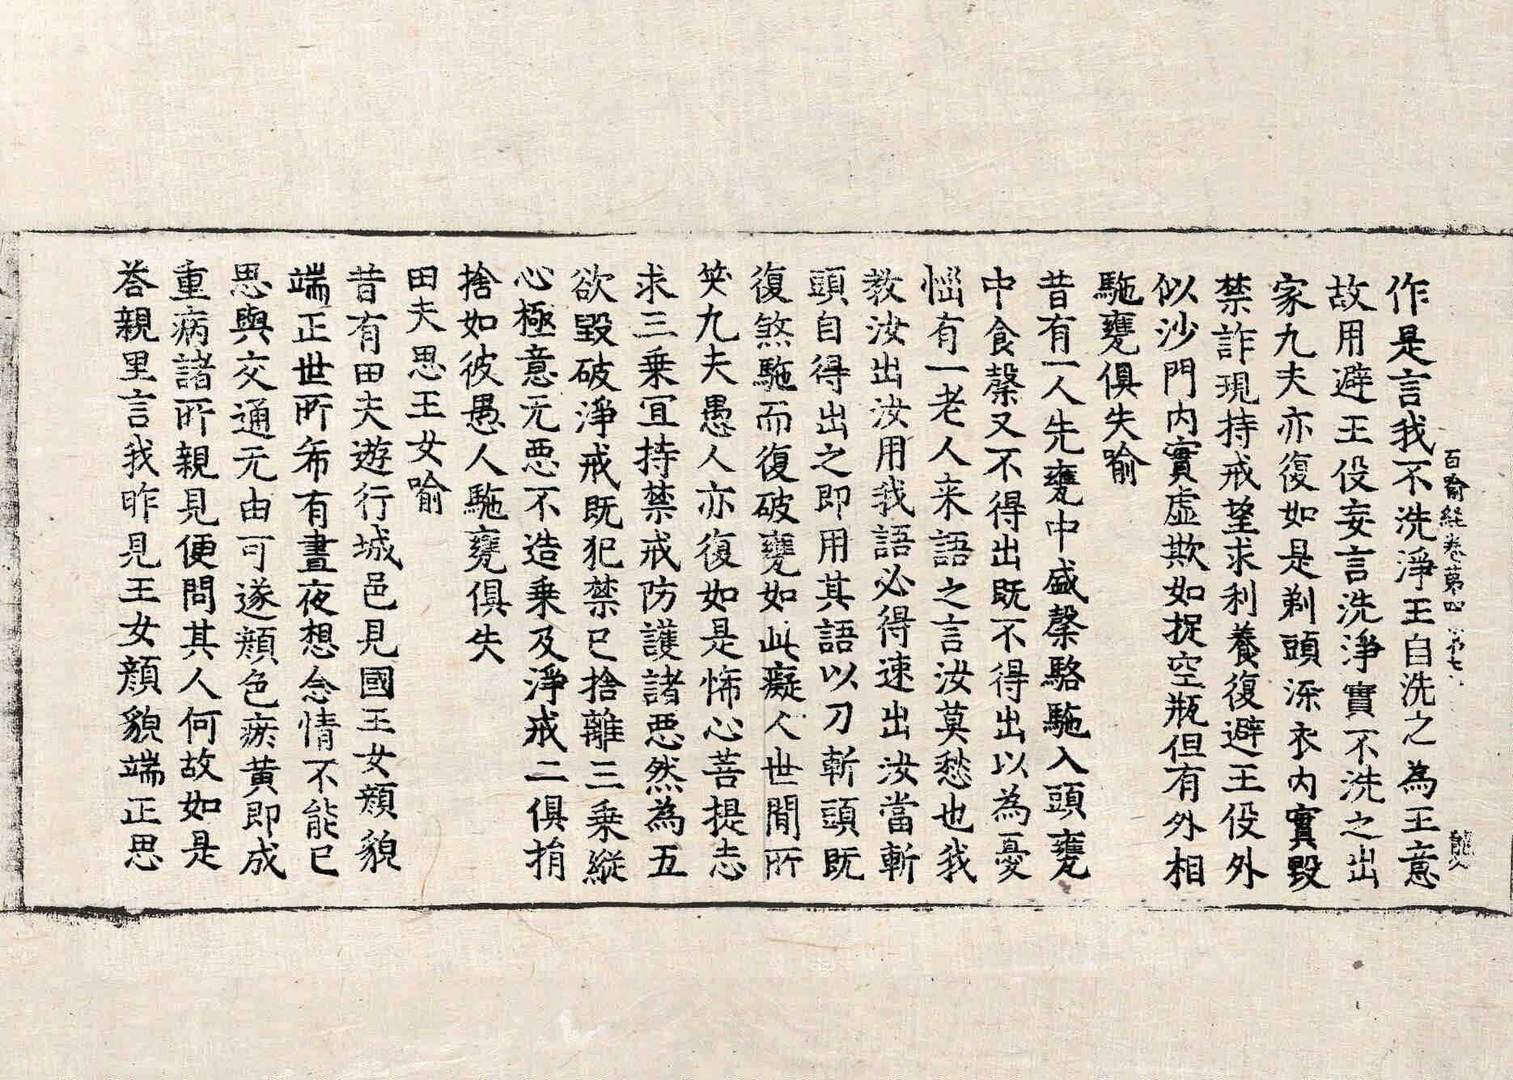 百喻經卷第四　第七
作是言我不洗淨王自洗之為王意
故用避王役妄言洗淨實不洗之出
家凡夫亦復如是剃頭染衣內實毀
禁詐現持戒望求利養復避王役外
似沙門內實虛欺如捉空瓶但有外相
駞甕俱失喻
昔有一人先甕中盛糓駱駞入頭甕
中食糓又不得出既不得出以為憂
惱有一老人来語之言汝莫愁也我
教汝出汝用我語必得速出汝當斬
頭自得出之即用其語以刀斬頭既
復煞駞而復破甕如此癡人世間所
笑凡夫愚人亦復如是悕心菩提志
求三乗宜持禁戒防護諸惡然為五
欲毀破淨戒既犯禁已捨離三乗縱
心極意无惡不造乗及淨戒二俱捐
捨如彼愚人駞甕俱失
田夫思王女喻
昔有田夫遊行城邑見國王女顏貌
端正世所希有晝夜想念情不能已
思與交通无由可遂顏色瘀黃即成
重病諸所親見便問其人何故如是
荅親里言我昨見王女顏貌端正思